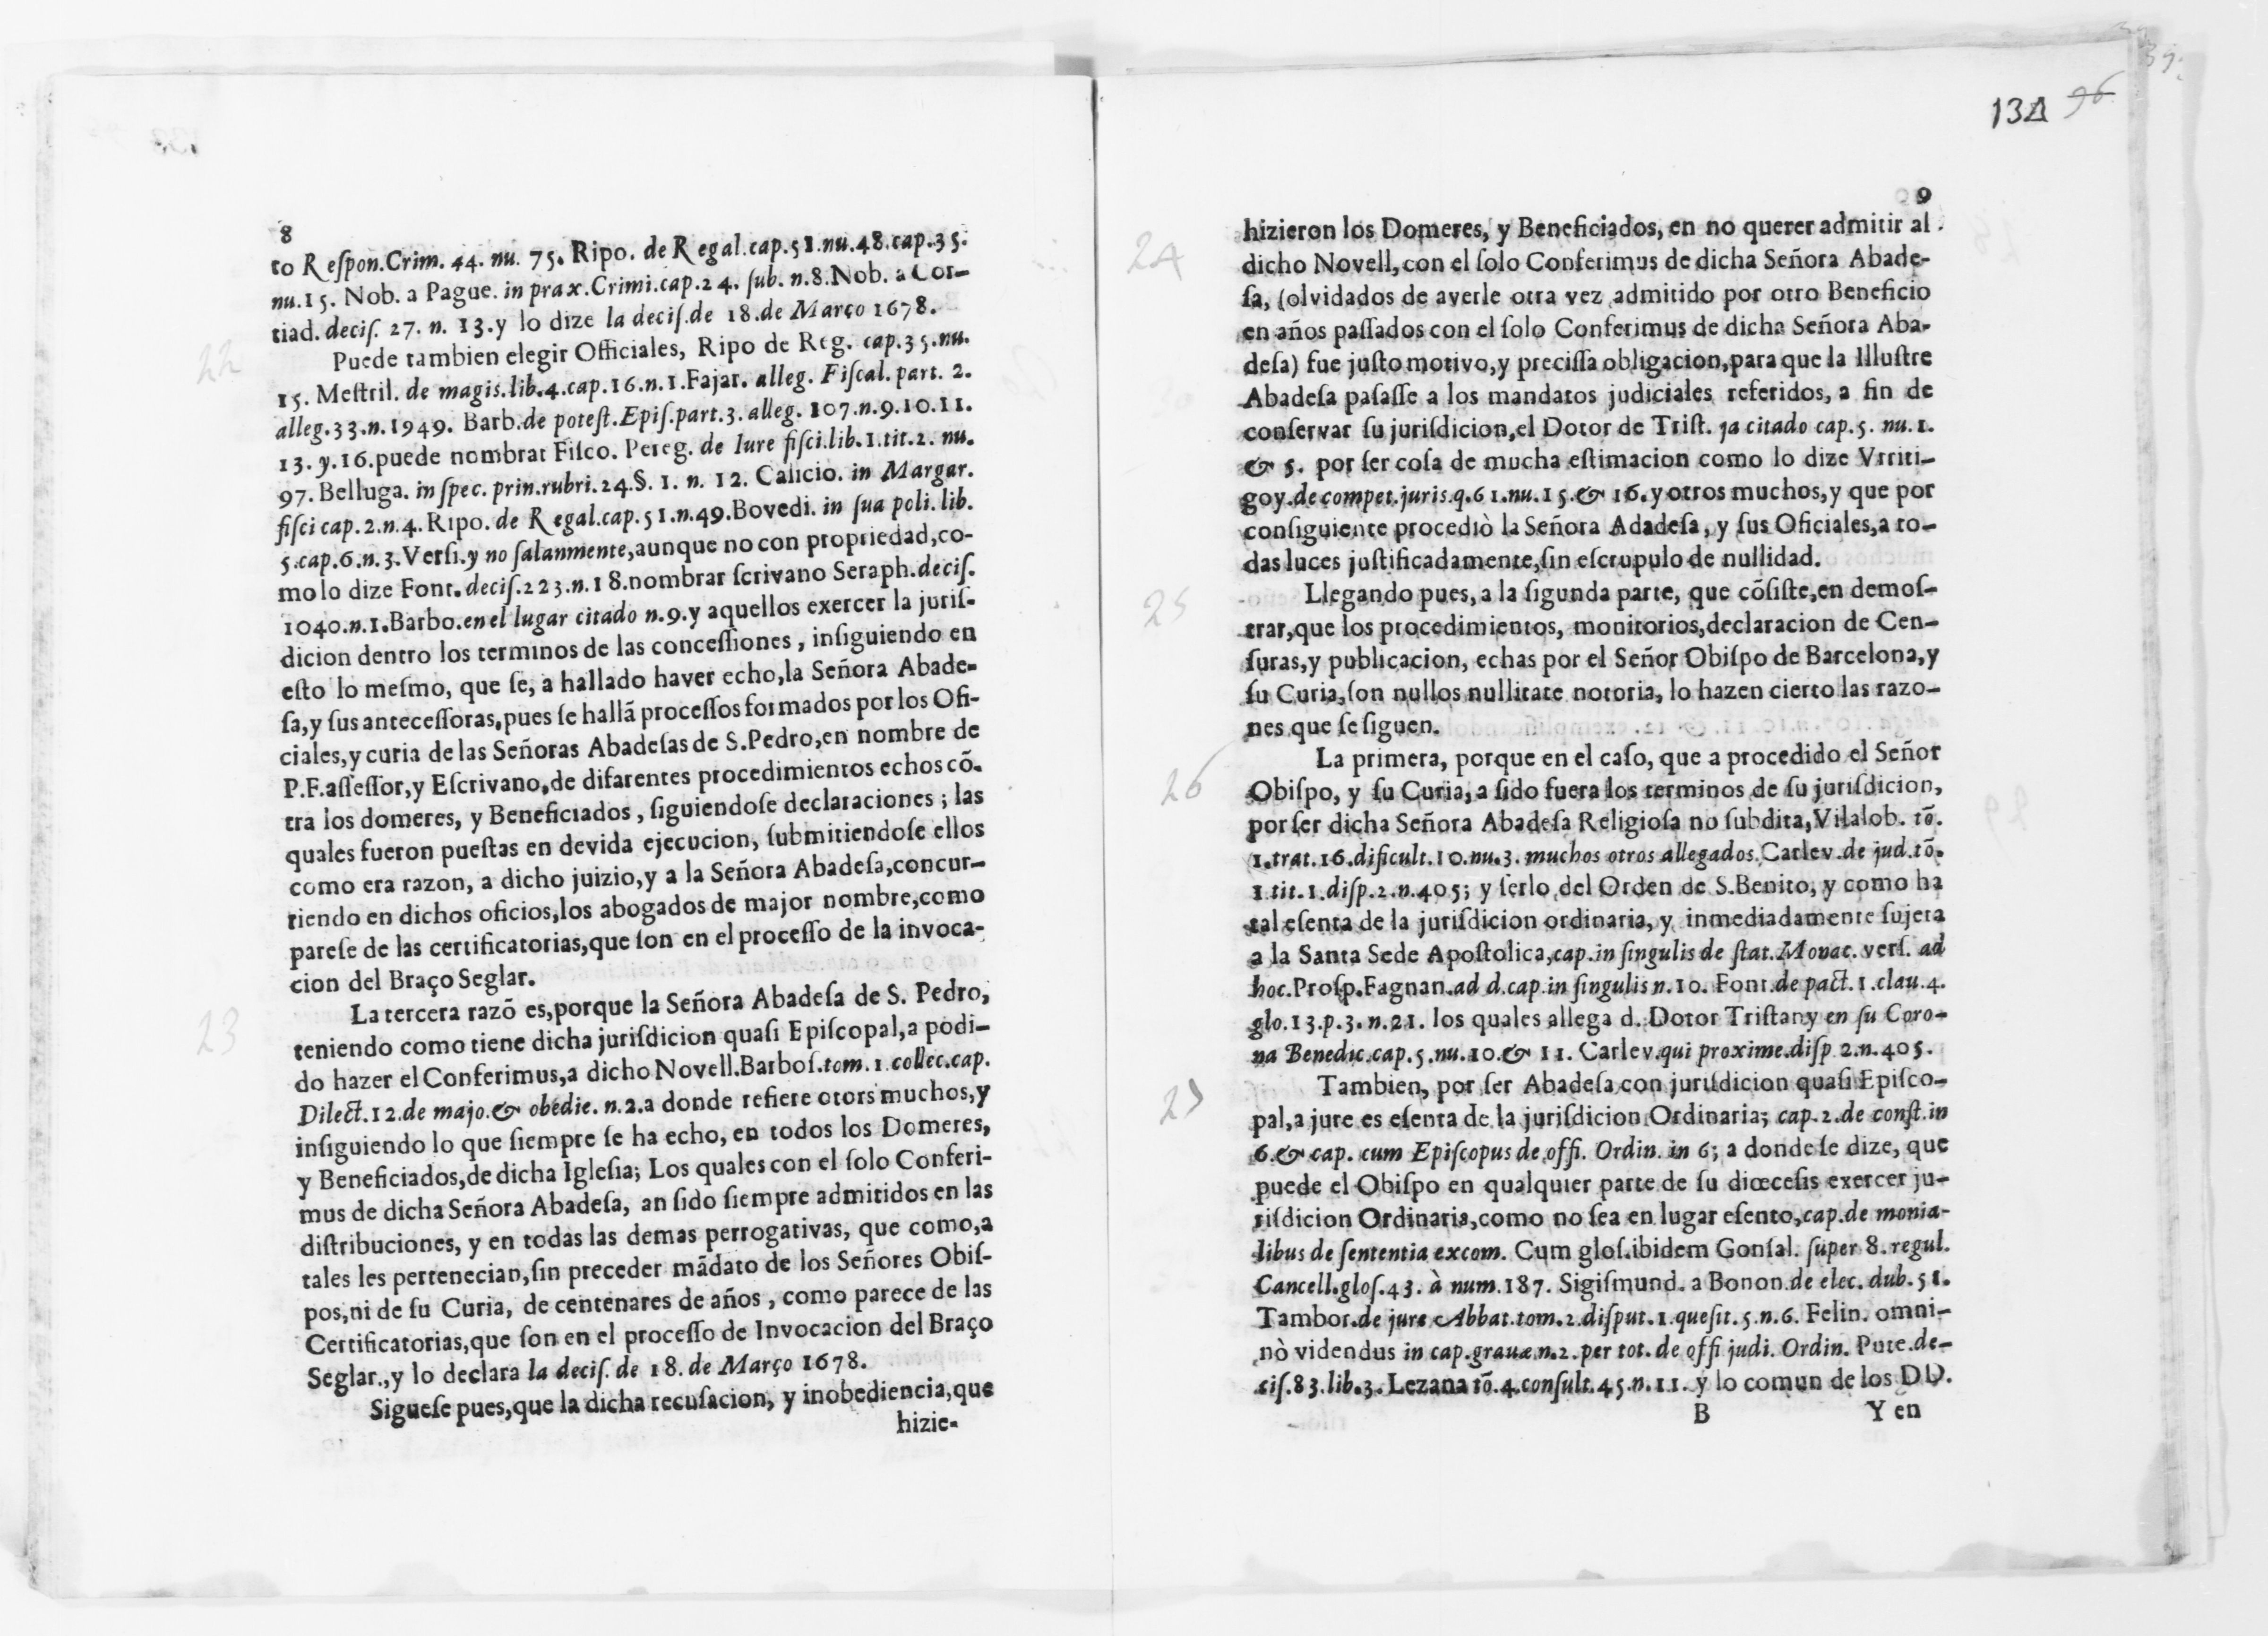 8
to Reſpon.Crim. 44. nu. 75. Ripo. de Regal.cap.51.nu.48.cap.35.
nu.15. Nob. a Pague. in prax.Crimi.cap.24. ſub. n.8.Nob. a Cor-
tiad. deciſ. 27. n. 13.y lo dize la deciſ.de 18.de Março 1678.
22
Puede tambien elegir Officiales, Ripo de Reg. cap.35.nu.
15. Meſtril. de magis.lib.4.cap.16.n.1.Fajar. alleg. Fiſcal. part. 2.
alleg.33.n.1949. Barb.de poteſt.Epiſ.part.3. alleg. 107.n.9.10.11.
13. y.16.puede nombrar Fiſco. Pereg. de Iure fiſci.lib.1.tit.2. nu.
97. Belluga. in ſpec. prin.rubri.24.§. 1. n. 12. Calicio. in Margar.
fiſci cap.2.n.4. Ripo. de Regal.cap.51.n.49.Bovedi. in ſua poli. lib.
5.cap.6.n.3.Verſi.y no ſalanmente,aunque no con propriedad,co-
mo lo dize Font. deciſ.223.n.18.nombrar ſcrivano Seraph.deciſ.
1040.n.1.Barbo.en el lugar citado n.9.y aquellos exercer la juriſ-
dicion dentro los terminos de las conceſſiones, inſiguiendo en
eſto lo meſmo, que ſe, a hallado haver echo,la Señora Abade-
ſa,y ſus anteceſſoras,pues ſe hallã proceſſos formados por los Ofi-
ciales,y curia de las Señoras Abadeſas de S.Pedro,en nombre de
P.F.aſſeſſor,y Eſcrivano,de difarentes procedimientos echos cõ-
tra los domeres, y Beneficiados, ſiguiendoſe declaraciones; las
quales fueron pueſtas en devida ejecucion, ſubmitiendoſe ellos
como era razon, a dicho juizio,y a la Señora Abadeſa,concur-
riendo en dichos oficios,los abogados de major nombre,como
pareſe de las certificatorias,que ſon en el proceſſo de la invoca-
cion del Braço Seglar.
23
La tercera razõ es,porque la Señora Abadeſa de S. Pedro,
teniendo como tiene dicha juriſdicion quaſi Epiſcopal,a podi-
do hazer el Conferimus,a dicho Novell.Barboſ.tom.1.collec.cap.
Dilect.12.de majo.& obedie. n.2.a donde refiere otors muchos,y
inſiguiendo lo que ſiempre ſe ha echo, en todos los Domeres,
y Beneficiados,de dicha Igleſia; Los quales con el ſolo Conferi-
mus de dicha Señora Abadeſa, an ſido ſiempre admitidos en las
diſtribuciones, y en todas las demas perrogativas, que como,a
tales les pertenecian,ſin preceder mãdato de los Señores Obiſ-
pos,ni de ſu Curia, de centenares de años, como parece de las
Certificatorias,que ſon en el proceſſo de Invocacion del Braço
Seglar.,y lo declara la deciſ. de 18. de Março 1678.
Sigueſe pues,que la dicha recuſacion, y inobediencia,que
hizie-
134 96
9
24
hizieron los Domeres, y Beneficiados, en no querer admitir al
dicho Novell,con el ſolo Conferimus de dicha Señora Abade-
ſa, (olvidados de averle otra vez admitido por otro Beneficio
en años paſſados con el ſolo Conferimus de dicha Señora Aba-
deſa) fue juſto motivo,y preciſſa obligacion,para que la Illuſtre
Abadeſa paſaſſe a los mandatos judiciales referidos, a fin de
conſervar ſu juriſdicion,el Dotor de Triſt. ja citado cap.5. nu.1.
& 5. por ſer coſa de mucha eſtimacion como lo dize Vrriti-
goy.de compet.juris.q.61.nu.15.& 16.y otros muchos,y que por
conſiguiente procediò la Señora Adadeſa, y ſus Oficiales,a to-
das luces juſtificadamente,ſin eſcrupulo de nullidad.
25
Llegando pues, a la ſigunda parte, que cõſiſte,en demoſ-
trar,que los procedimientos, monitorios,declaracion de Cen-
ſuras,y publicacion, echas por el Señor Obiſpo de Barcelona,y
ſu Curia,ſon nullos nullitate notoria, lo hazen cierto las razo-
nes que ſe ſiguen.
26
La primera, porque en el caſo, que a procedido el Señor
Obiſpo, y ſu Curia, a ſido fuera los terminos de ſu juriſdicion,
por ſer dicha Señora Abadeſa Religioſa no ſubdita, Vilalob. tõ.
1.trat.16.dificult.10.nu.3. muchos otros allegados.Carlev.de jud.tõ.
1.tit.1.diſp.2.n.405; y ſerlo del Orden de S.Benito, y como ha
tal eſenta de la juriſdicion ordinaria, y inmediadamente ſujeta
a la Santa Sede Apoſtolica,cap.in ſingulis de ſtat.Monac. verſ. ad
hoc.Proſp.Fagnan.ad d.cap.in ſingulis n.10. Font.de pact.1.clau.4.
glo.13.p.3.n.21. los quales allega d. Dotor Triſtany en ſu Coro-
na Benedic.cap.5.nu.10.& 11. Carlev.qui proxime.diſp 2.n.405.
27
Tambien, por ſer Abadeſa con juriſdicion quaſi Epiſco-
pal,a jure es eſenta de la juriſdicion Ordinaria; cap.2.de conſt.in
6.& cap. cum Epiſcopus de offi. Ordin. in 6; a donde ſe dize, que
puede el Obiſpo en qualquier parte de ſu diœceſis exercer ju-
riſdicion Ordinaria,como no ſea en lugar eſento,cap.de monia-
libus de ſententia excom. Cum gloſ.ibidem Gonſal. ſuper 8. regul.
Cancell.gloſ.43. à num.187. Sigiſmund. a Bonon.de elec. dub.51.
Tambor.de jure Abbat.tom.2.diſput.1.queſit.5.n.6. Felin. omni-
nò videndus in cap.grauæ.n.2. per tot. de offi judi. Ordin. Pute.de-
ciſ.83.lib.3. Lezana tõ.4.conſult.45.n.11. y lo comun de los DD.
B Y en